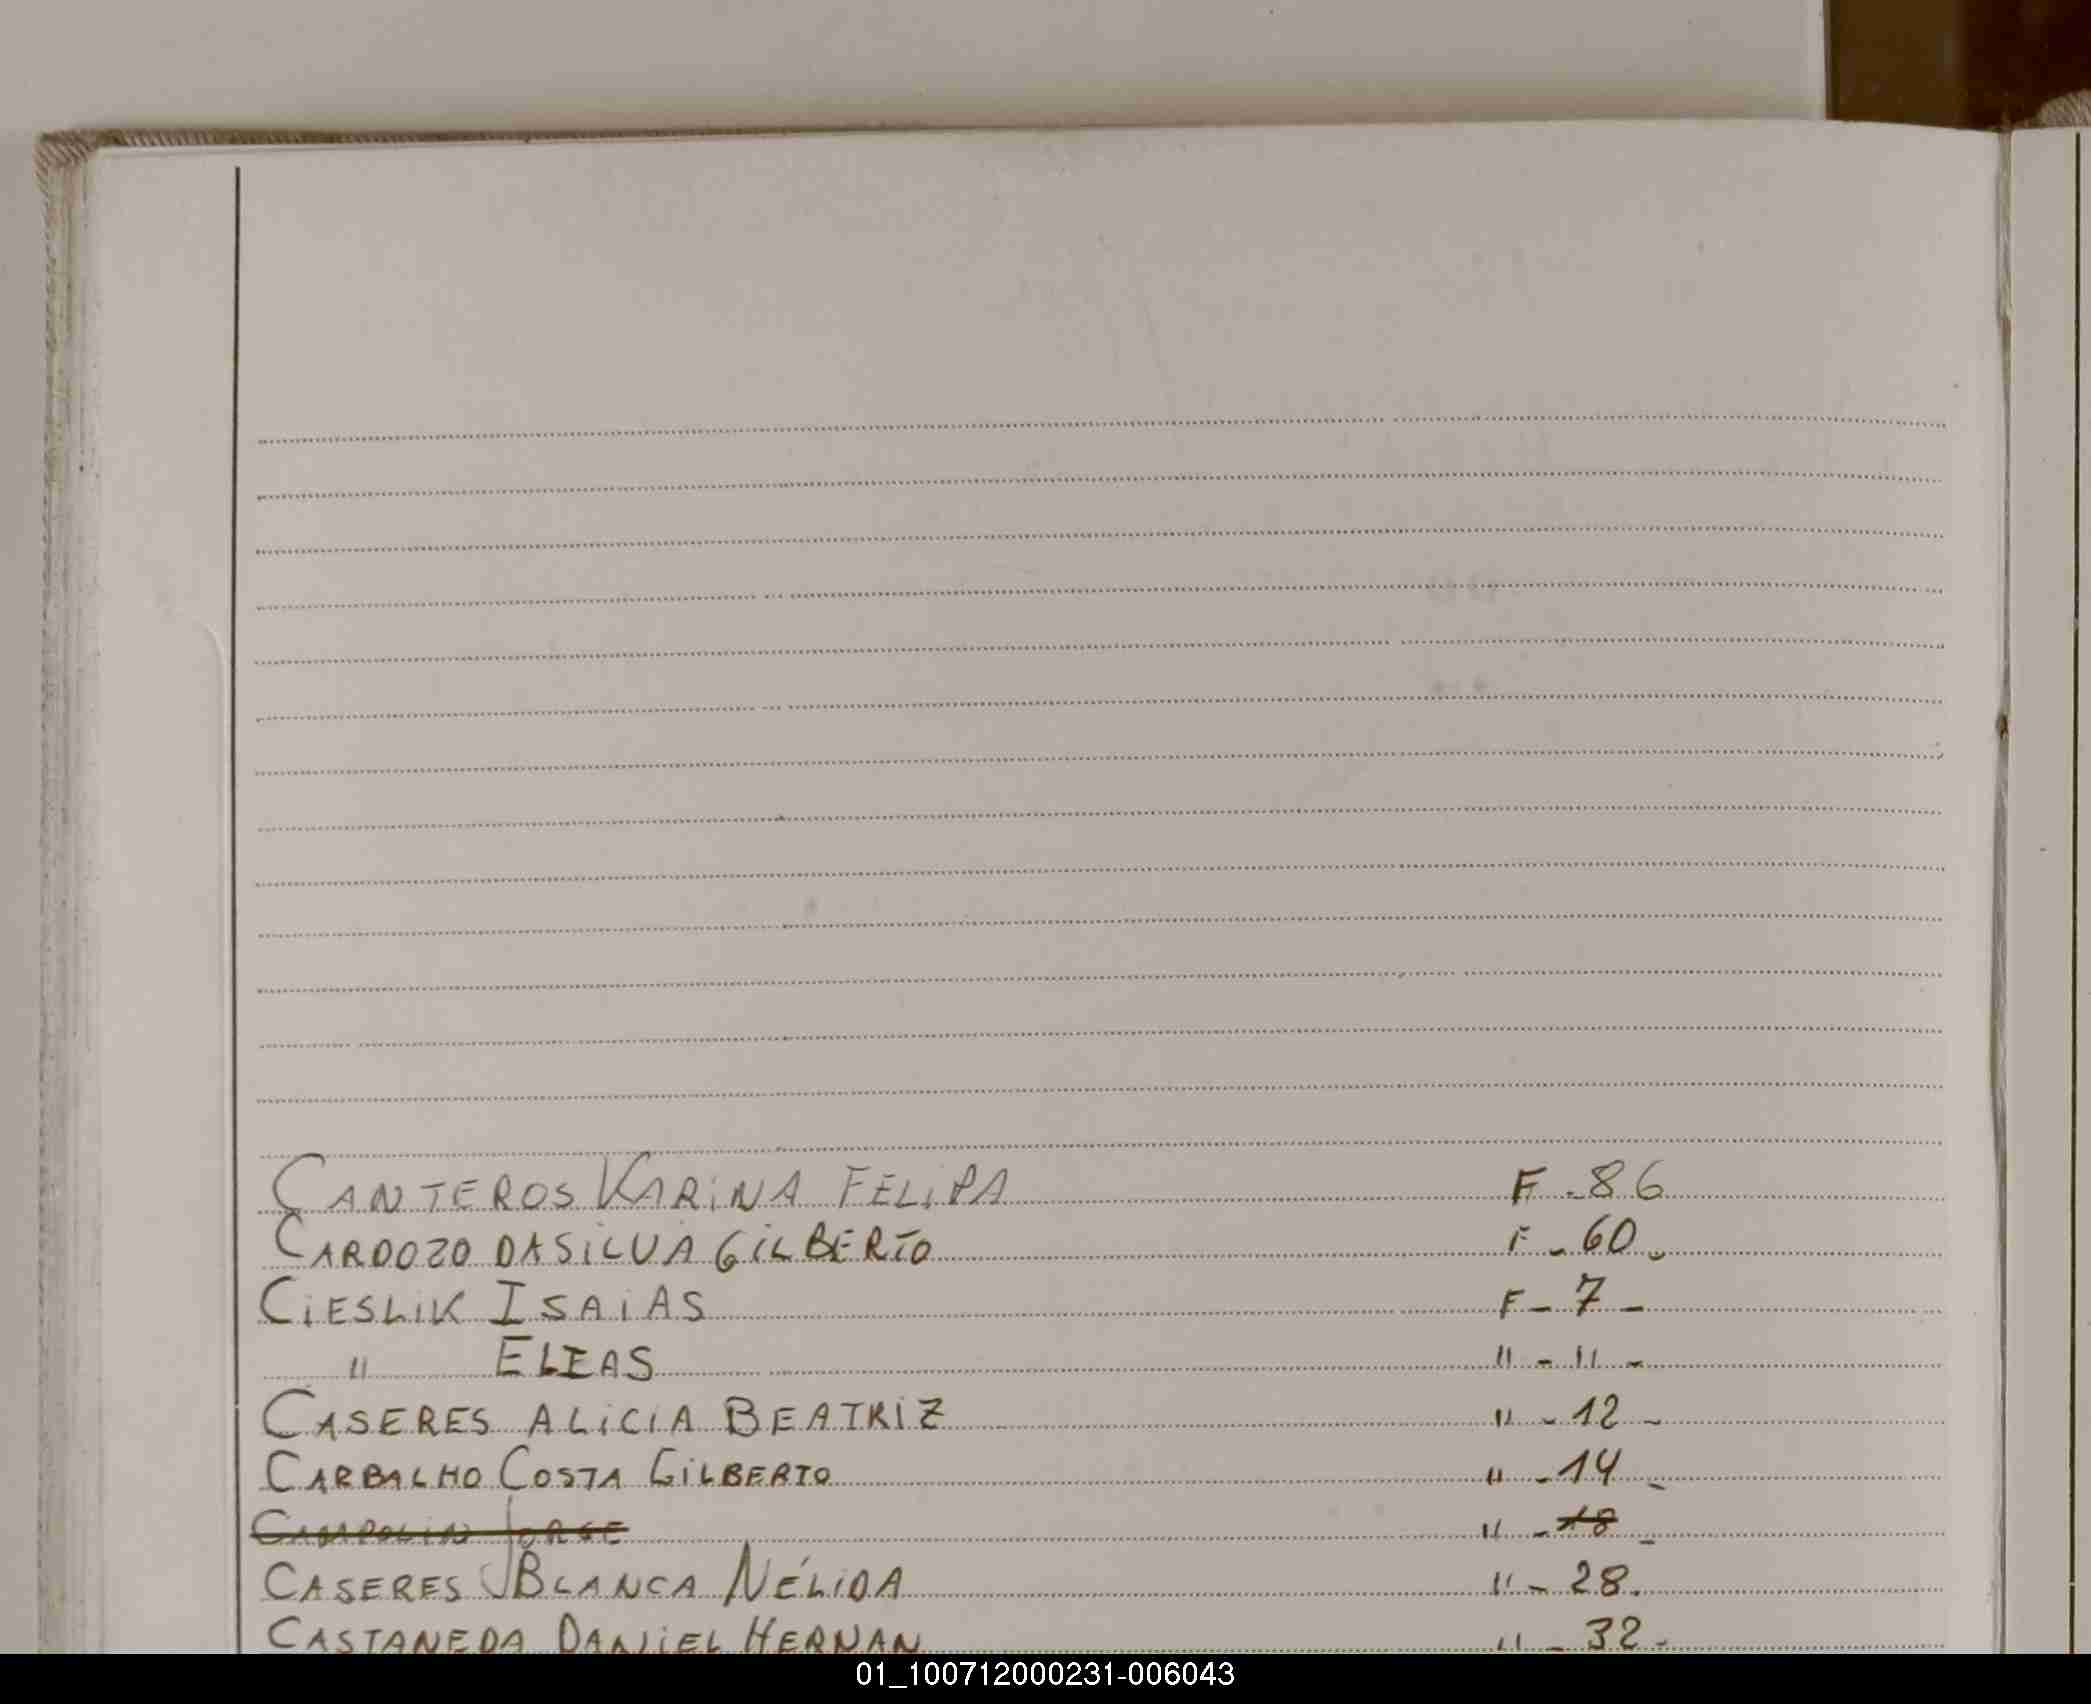 CANTEROS KARINA FELIPA F - 86
CARDOZO DASILVA GILBERTO F - 60 -
CIESLIK ISAIAS F - 7 -
" ELIAS " - " -
CASERES ALICIA BEATRIZ " - 12 -
CARBALHO COSTA GILBERTO " - 14 -
JORGE " - 18 -
CASERES BLANCA NÉLIDA " - 28.
CASTANEDA DANIEL HERNAN " - 32 -
01_100712000231-006043